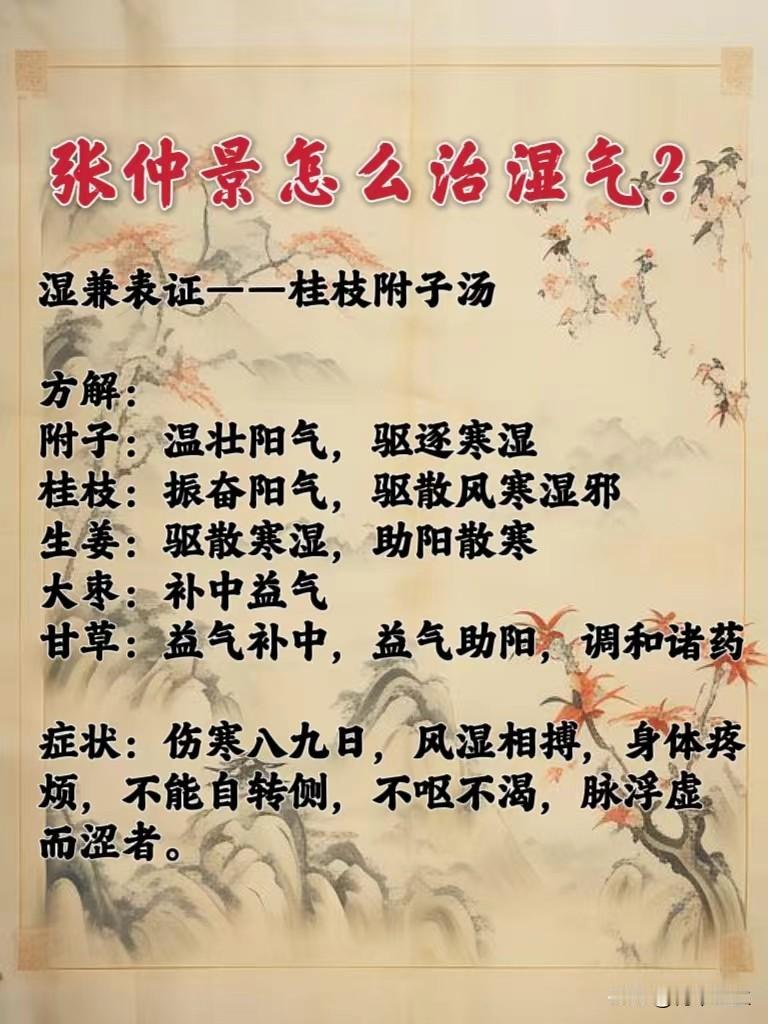 张仲景怎么治湿气?
湿兼表证——桂枝附子汤
方解：
附子：温壮阳气，驱逐寒湿
桂枝：振奋阳气，驱散风寒湿邪
生姜：驱散寒湿，助阳散寒
大枣：补中益气
甘草：益气补中，益气助阳，调和诸药
症状：伤寒八九日，风湿相搏，身体疼
烦，不能自转侧，不呕不渴，脉浮虚
而涩者。